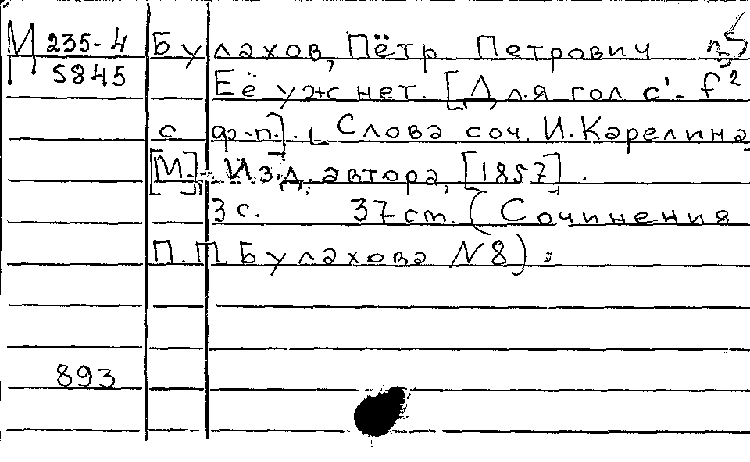 М 235-4 Булахов, Пётр Петрович
5845 Её уж нет. [Для гол. c¹- f²
с ф-п.]. Слова соч. И. Карелина
[М.], Изд. автора, [1857].
3 с. 37 см. (Сочинения
П.П. Булахова N 8).
893